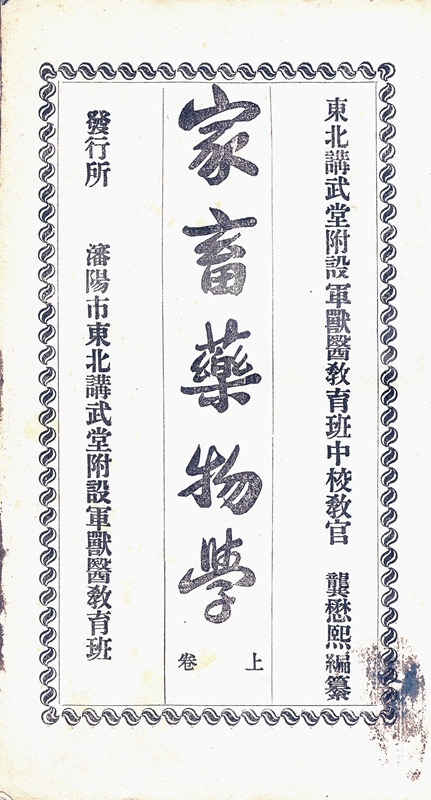 東北講武堂附設軍獸醫教育班中校教官 龔懋熙編纂
家畜藥物學
上卷
發行所 瀋陽市東北講武堂附設軍獸醫教育班